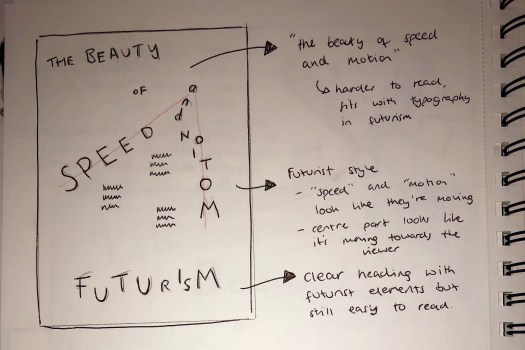 THE BEAUTY
OF
SPEED
and
MOTION
FUTURISM
"the beauty of speed
and motion"
↳ harder to read,
fits with typography
in futurism
Futurist style
- "speed" and "motion"
look like they're moving
- centre part looks like
it's moving towards the
viewer
Clear heading with
futurist elements but
still easy to read.